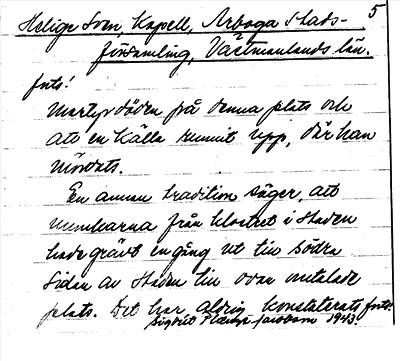 5
Helige Sven, Kapell, Arboga Stads-
församling, Västmanlands län.
forts!
Martyrdöden på denna plats och
att en källa runnit upp, där han
mördats.
En annan tradition säger, att
munkarna från klostret i staden
hade grävt en gång ut till södra
sidan av staden till ovan omtalade
plats. Det har aldrig konstaterats forts.
Sigrid 1943.